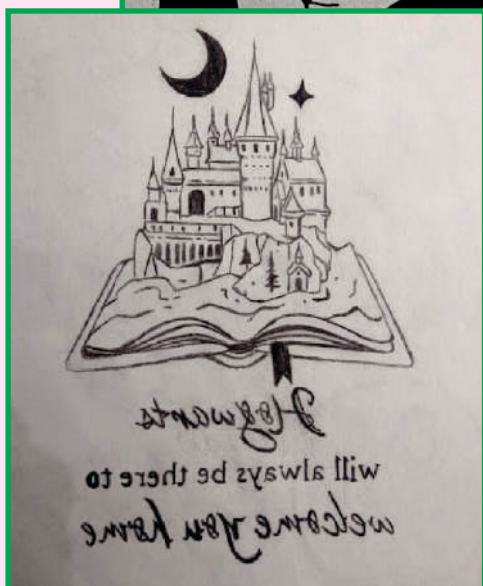 Hogwarts
will always be there to
welcome you home